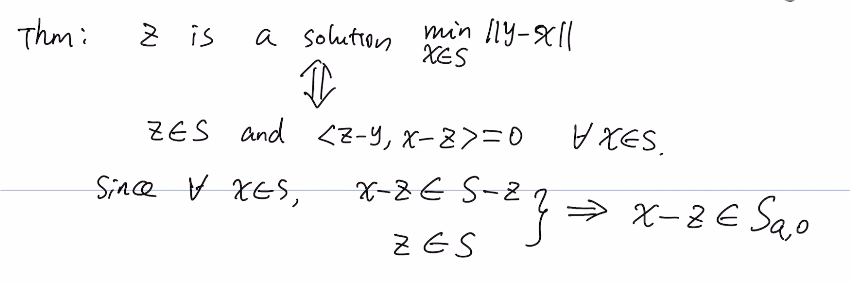 Thm: z is a solution min ||y-x||
x∈S
⇕
z∈S and <z-y, x-z>=0 ∀ x∈S.
Since ∀ x∈S, x-z∈ S-z } ⇒ x-z ∈ Sa,0
z∈S